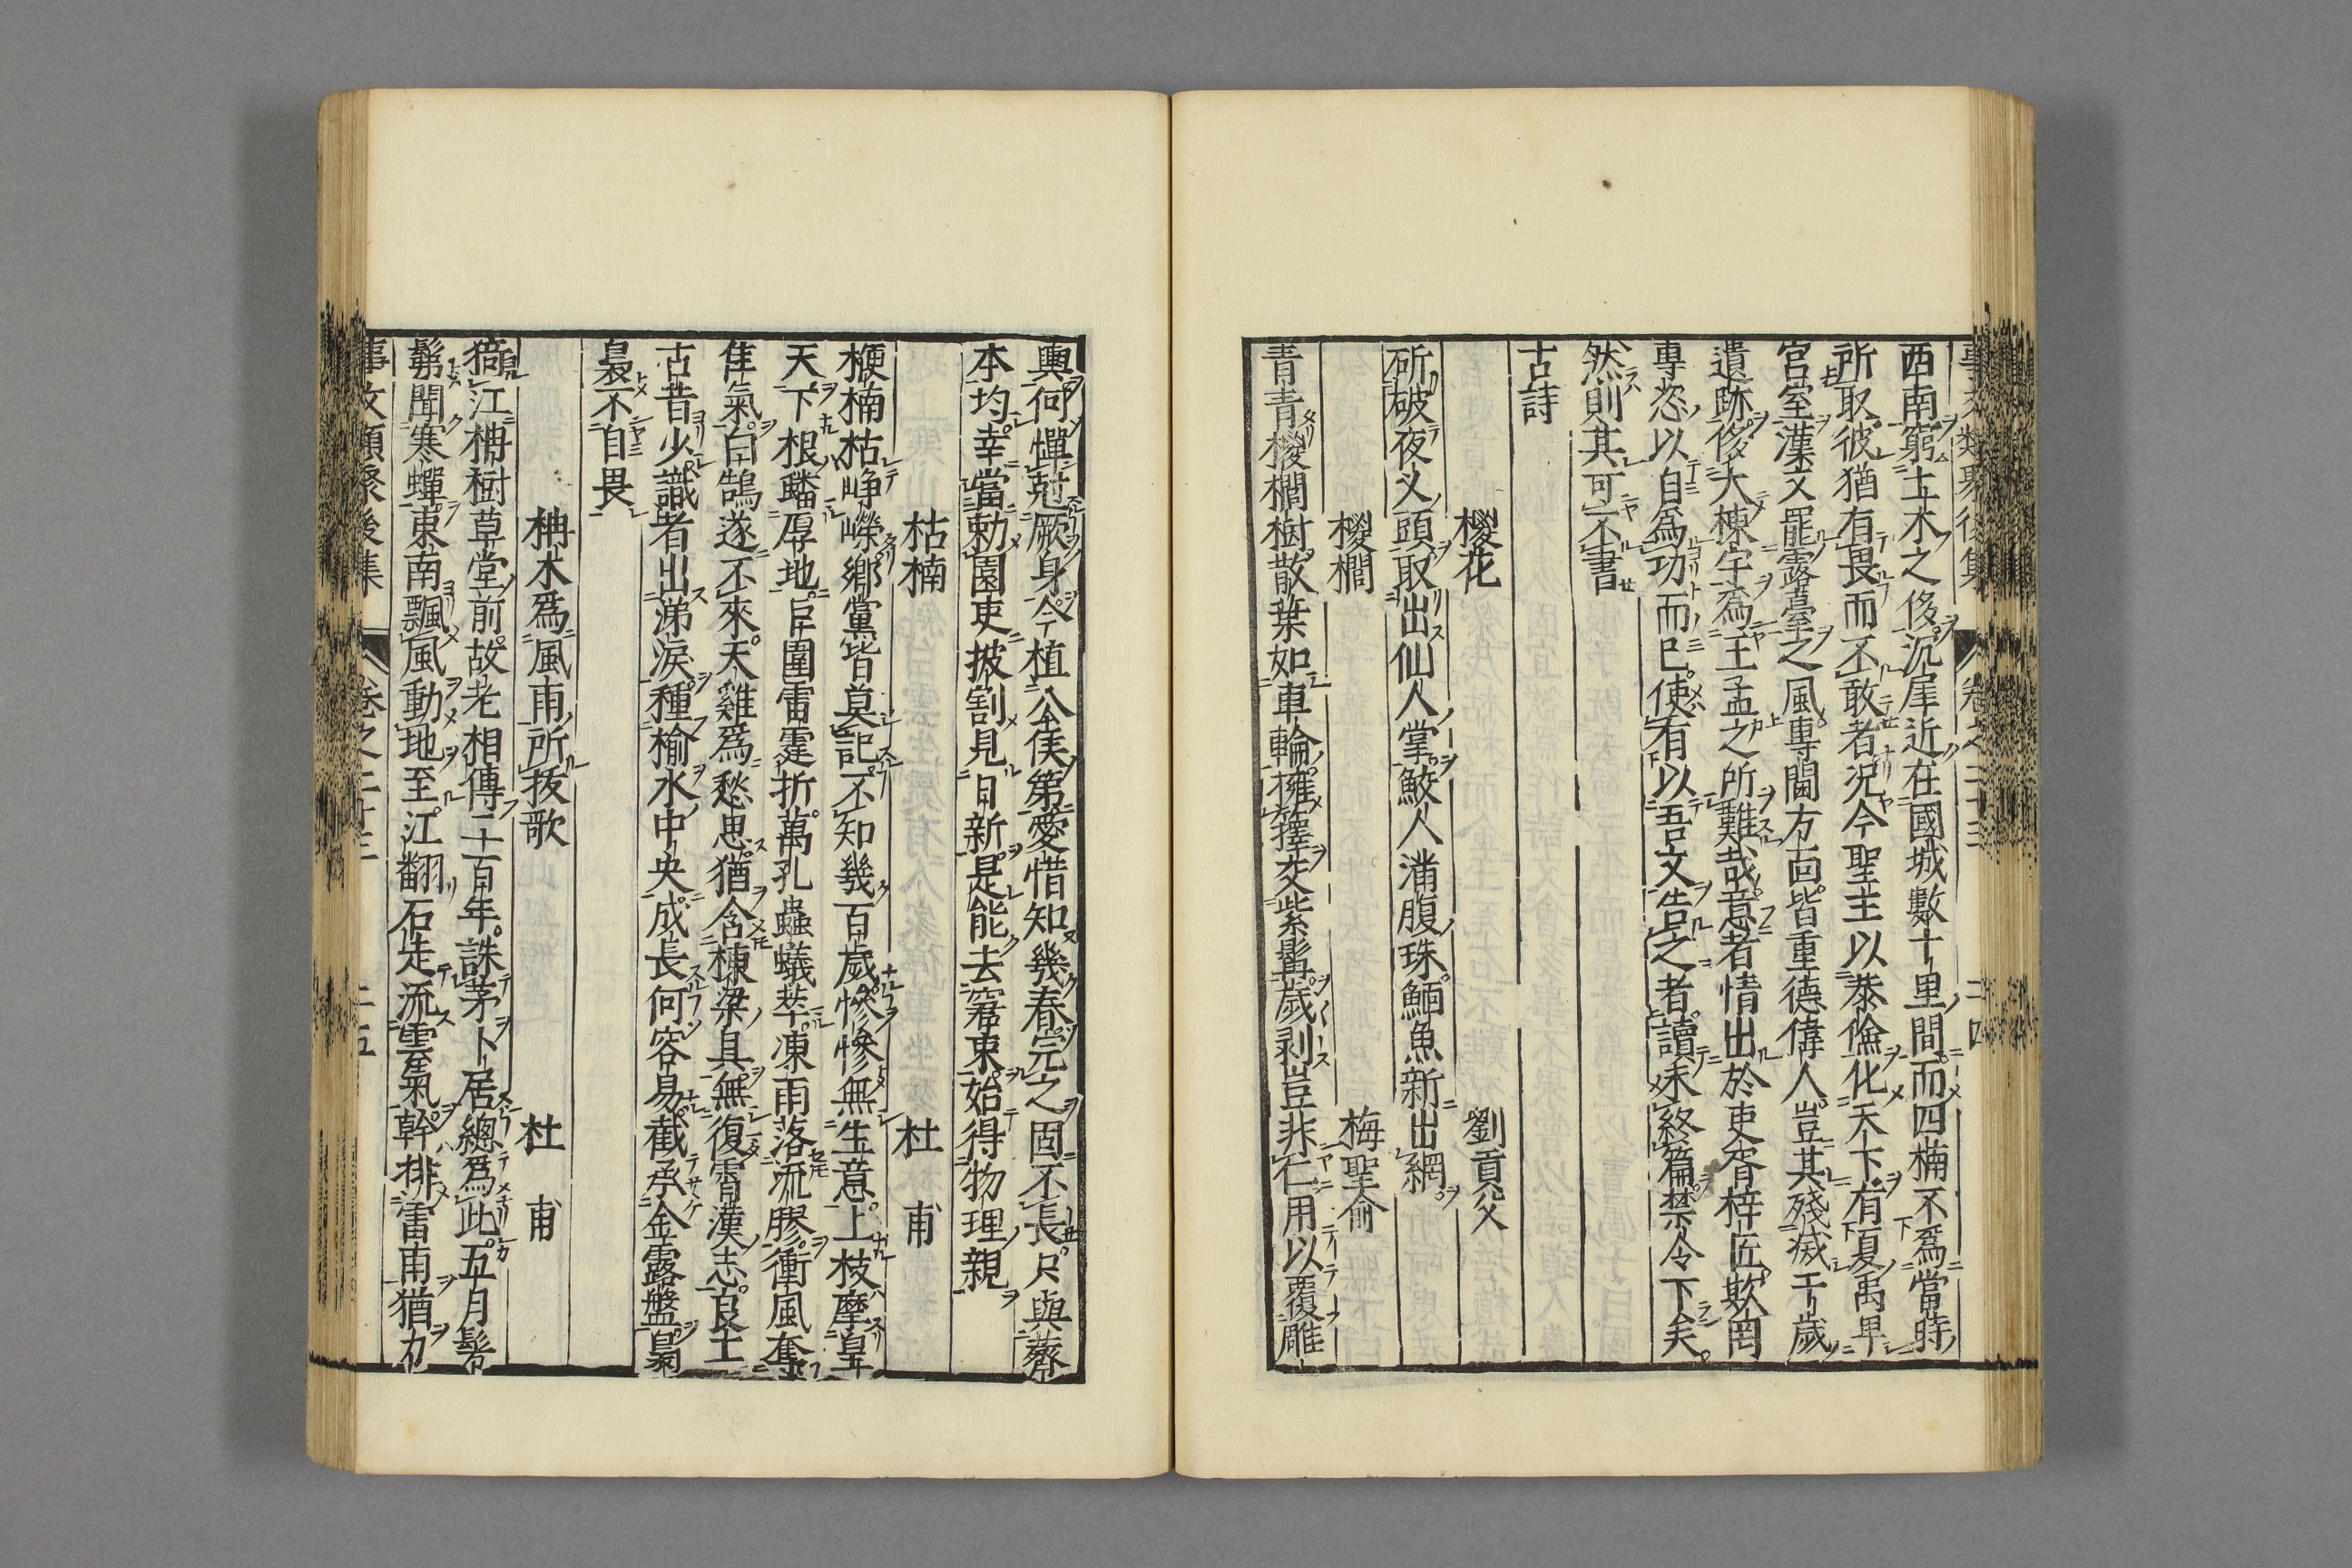 事文類聚後集 卷之二十三 二十四
西南窮土木之侈沉犀近在國城數十里間而四楠不爲當時
所取彼猶有畏而不敢者況今聖主以恭儉化天下有夏禹卑
宮室漢文罷露臺之風專閫方面皆重德偉人豈其殘滅千歲
遺跡侈大棟宇爲王孟之所難哉意者情出於吏胥梓匠欺罔
專恣以自爲功而已使有以吾文告之者讀未終篇禁令下矣
然則其可不書
古詩
椶花 劉貢父
斫破夜叉頭取出仙人掌鮫人滿腹珠鮞魚新出網
椶櫚 梅聖俞
青青椶櫚樹散葉如車輪擁籜交紫髯歲剥豈非仁用以覆雕
輿何憚剋厥身今植公侯第愛惜知幾春完之固不長只與薺
本均幸當勅園吏披割見日新是能去窘束始得物理親
枯楠 杜 甫
楩楠枯崢嶸鄉黨皆莫記不知幾百歲慘慘無生意上枝摩皇
天下根蟠厚地巨圍雷霆折萬孔蟲蟻萃凍雨落流膠衝風奪
佳氣白鵠遂不來天雞爲愁思猶含棟梁具無復霄漢志良工
古昔少識者出涕淚種榆水中央成長何容易截承金露盤裊
裊不自畏
柟木爲風雨所拔歌 杜 甫
倚江柟樹草堂前故老相傳二百年誅茅卜居總爲此五月髣
髴聞寒蟬東南飄風動地至江翻石走流雲氣幹排雷雨猶力
事文類聚後集 卷之二十三 二十五